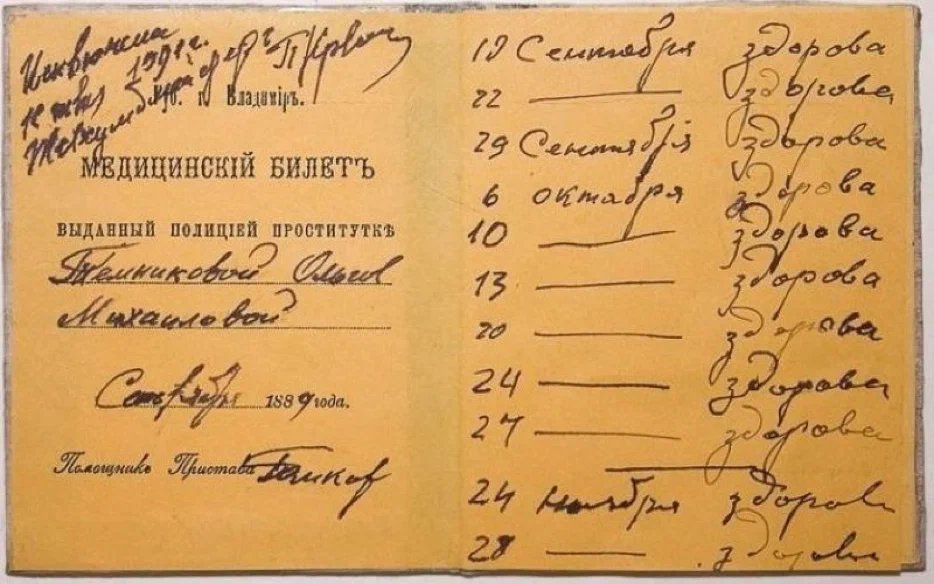 г. Владиміръ.
МЕДИЦИНСКІЙ БИЛЕТЪ
ВЫДАННЫЙ ПОЛИЦІЕЙ ПРОСТИТУТКѢ
Темниковой Ольгов
Михаиловой
Сентября 1889 года.
Помощникъ Пристава
19 Сентября здорова
22 — здорова
29 Сентября здорова
6 октября здорова
10 — здорова
13 — здорова
20 — здорова
24 — здорова
27 — здорова
24 ноября здорова
28 — здорова